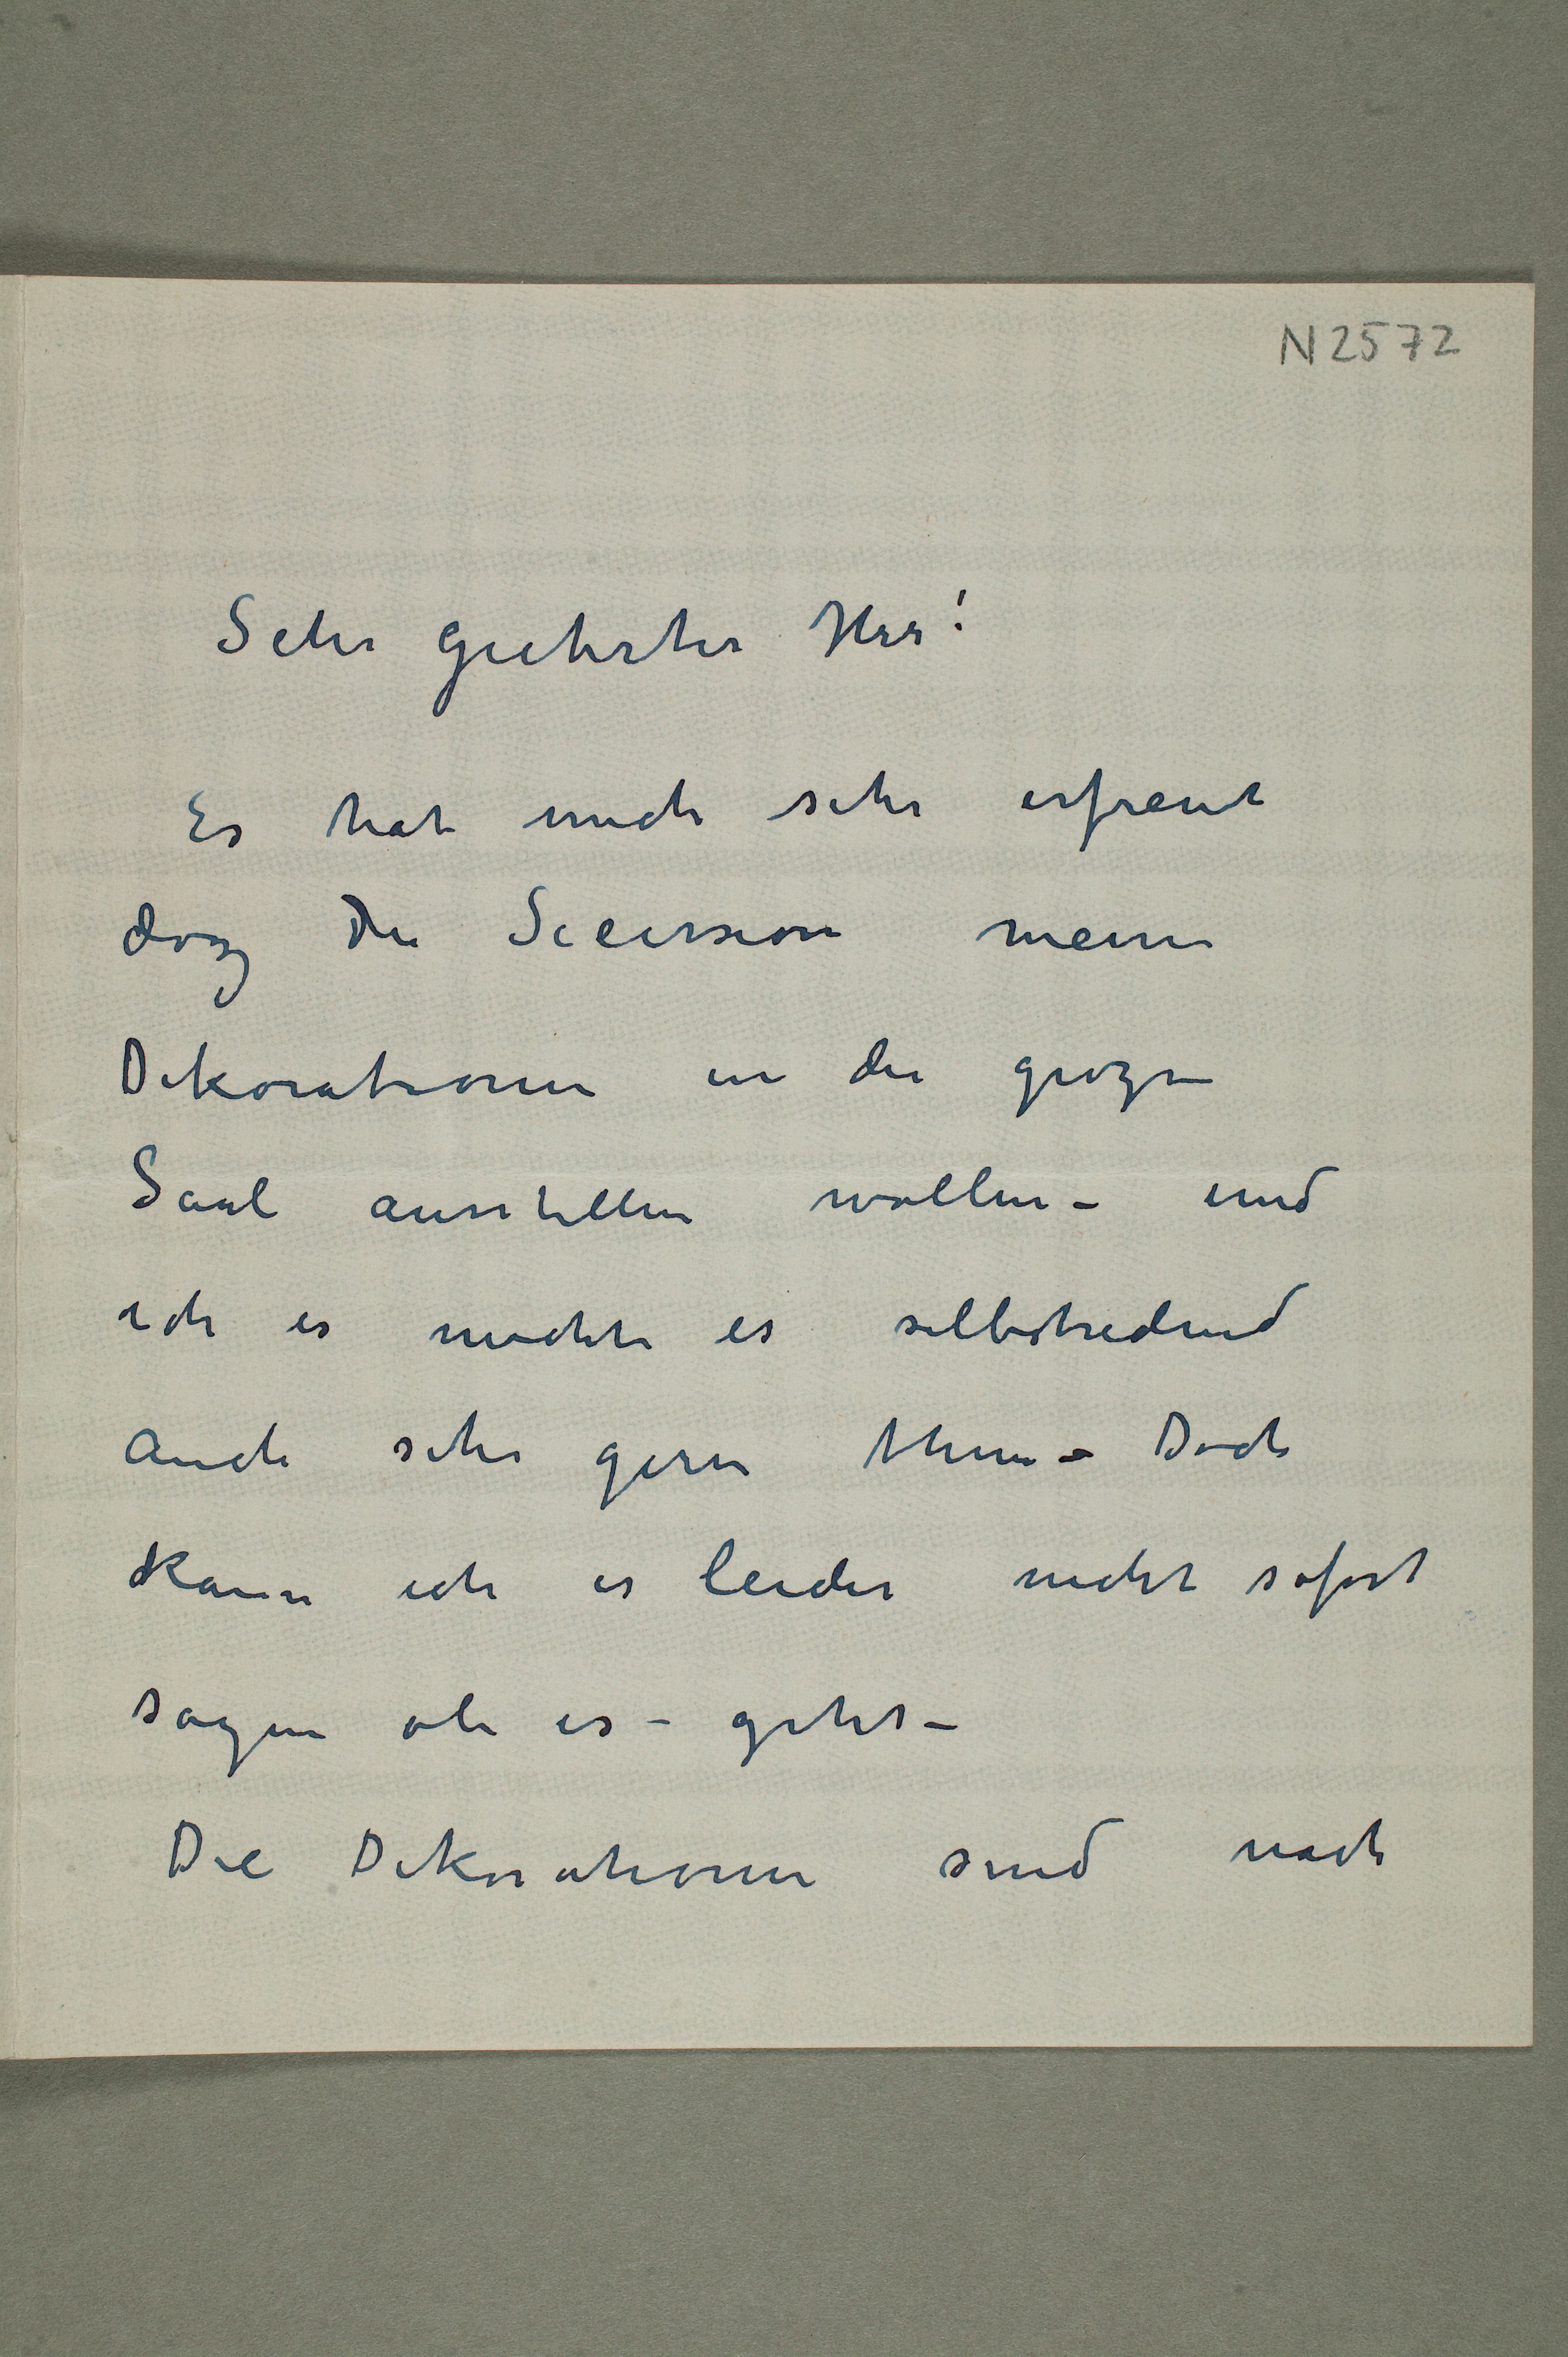 N 2572
Sehr geehrter Herr!
Es hat mich sehr erfreut
dasz die Secession meine
Dekorationen in die groze
Saal ausstellen wollen – und
ich es möchte es selbstredend
auch sehr gern thun – Doch
kann ich es leider nicht sofort
sagen ob es – geht –
Die Dekorationen sind nach